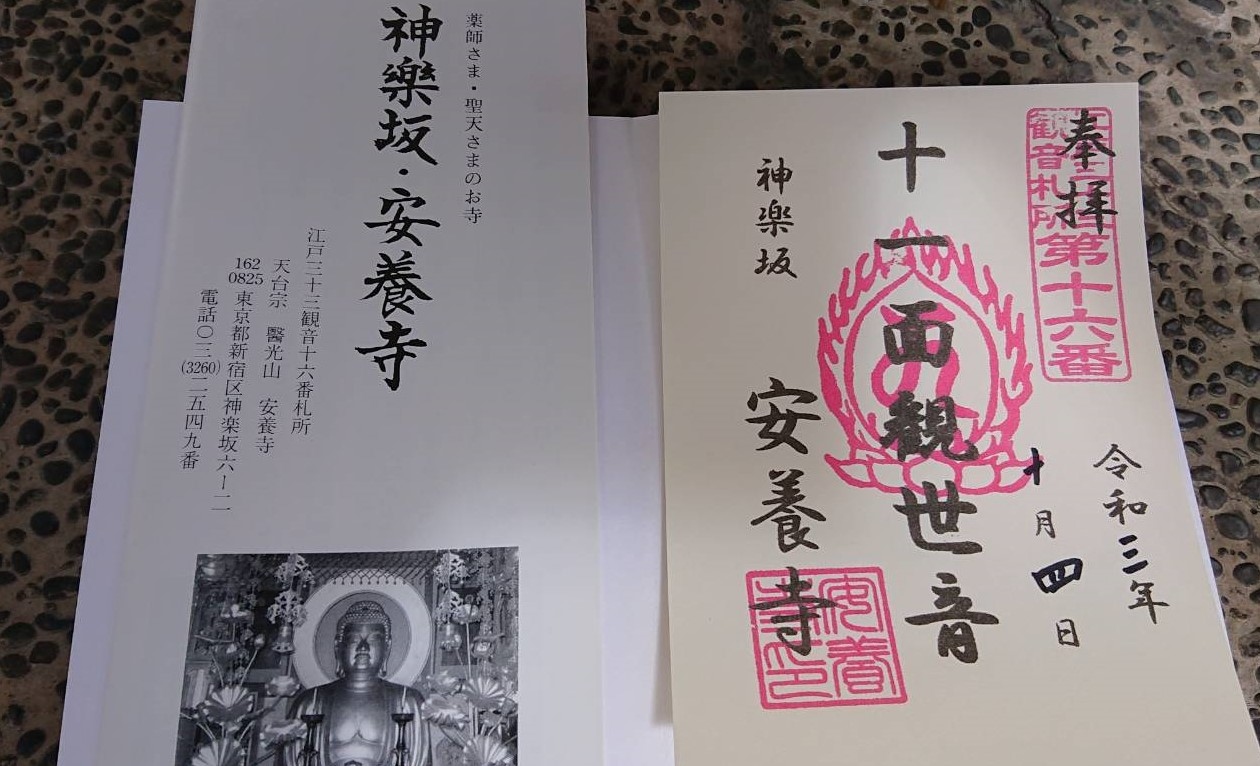 薬師さま・聖天さまのお寺
神樂坂・安養寺
江戸三十三観音十六番札所
天台宗 醫光山 安養寺
162
0825 東京都新宿区神楽坂六ー二
電話〇三(3260)二五四九番
奉拝
観音札所
第十六番
令和三年
十月四日
十一面観世音
神楽坂
安養寺
安養
寺印